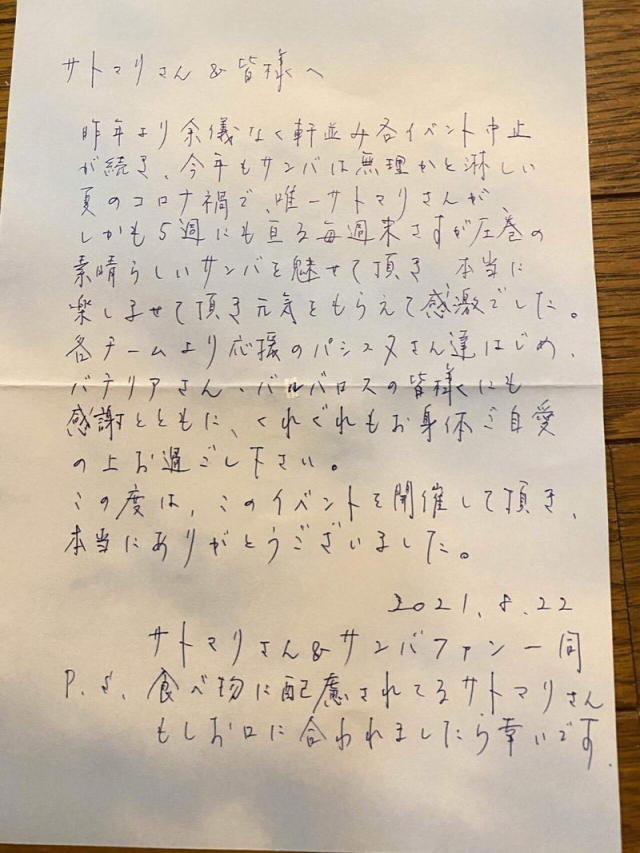 サトマリさん&皆様へ
昨年より余儀なく軒並み各イベント中止
が続き、今年もサンバは無理かと淋しい
夏のコロナ禍で、唯一サトマリさんが、
しかも5週にも亘る毎週末さすが圧巻の
素晴らしいサンバを魅せて頂き 本当に
楽しませて頂き元気をもらえて感激でした。
各チームより応援のパシスタさん達はじめ、
バテリアさん・バルバロスの皆様にも
感謝とともに、くれぐれもお身体ご自愛
の上お過ごし下さい。
この度は、このイベントを開催して頂き、
本当にありがとうございました。
2021.8.22
サトマリさん&サンバファン一同
P.S. 食べ物に配慮されてるサトマリさん
もしお口に合われましたら幸いです.